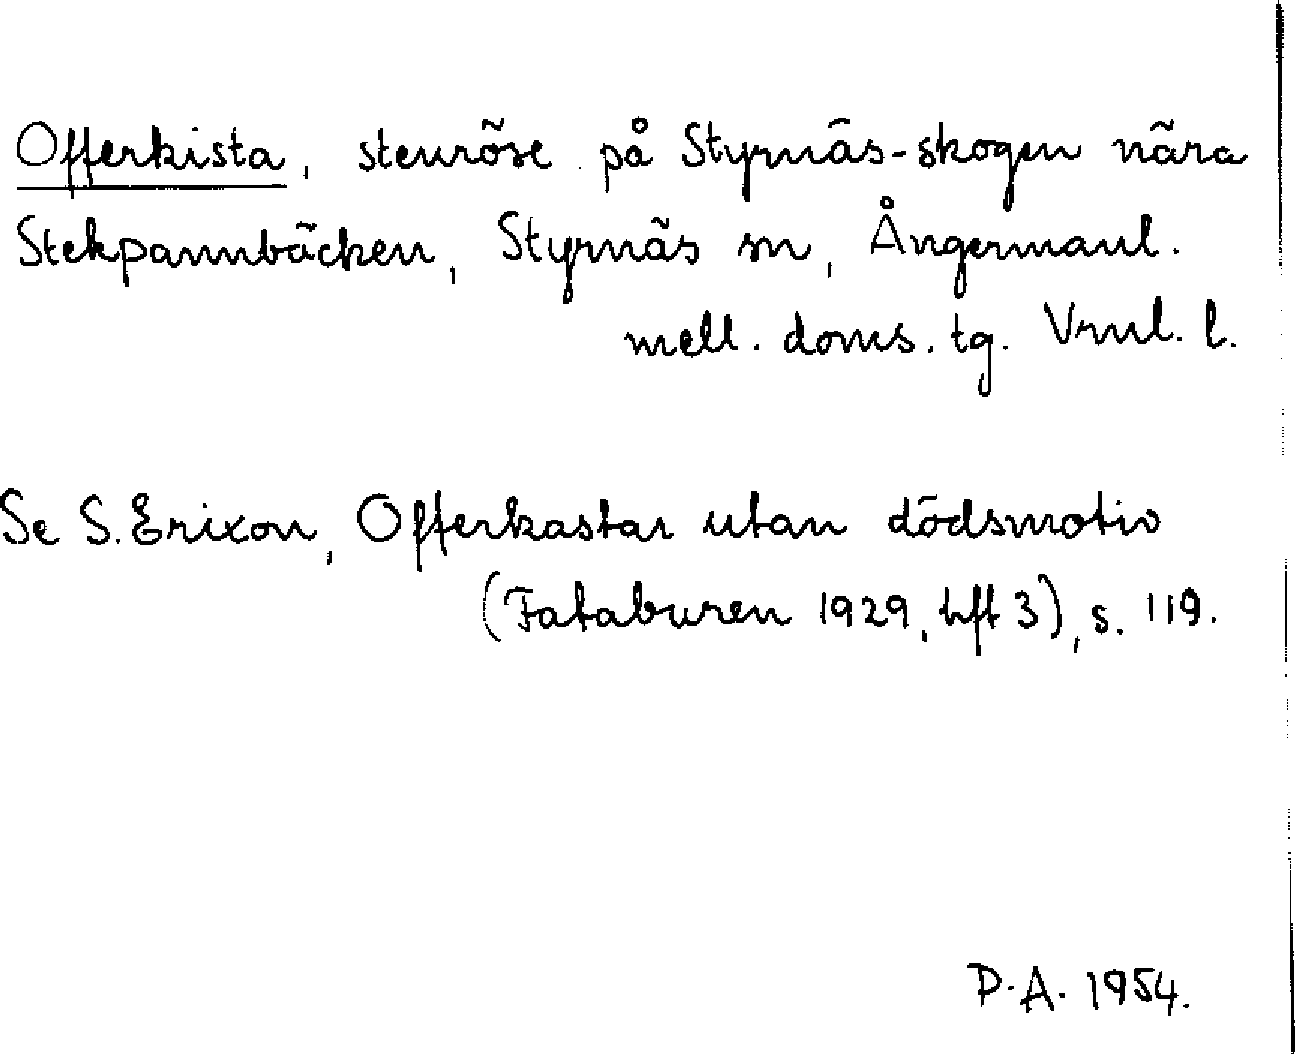 Offerkista, stenröse på Styrnäs-skogen nära
Stekpannbäcken, Styrnäs sn, Ångermanl.
mell. doms. tg. Vrnl. l.
Se S. Erixon, Offerkastar utan dödsmotiv
(Fataburen 1929, hft 3), s. 119.
P. A. 1954.